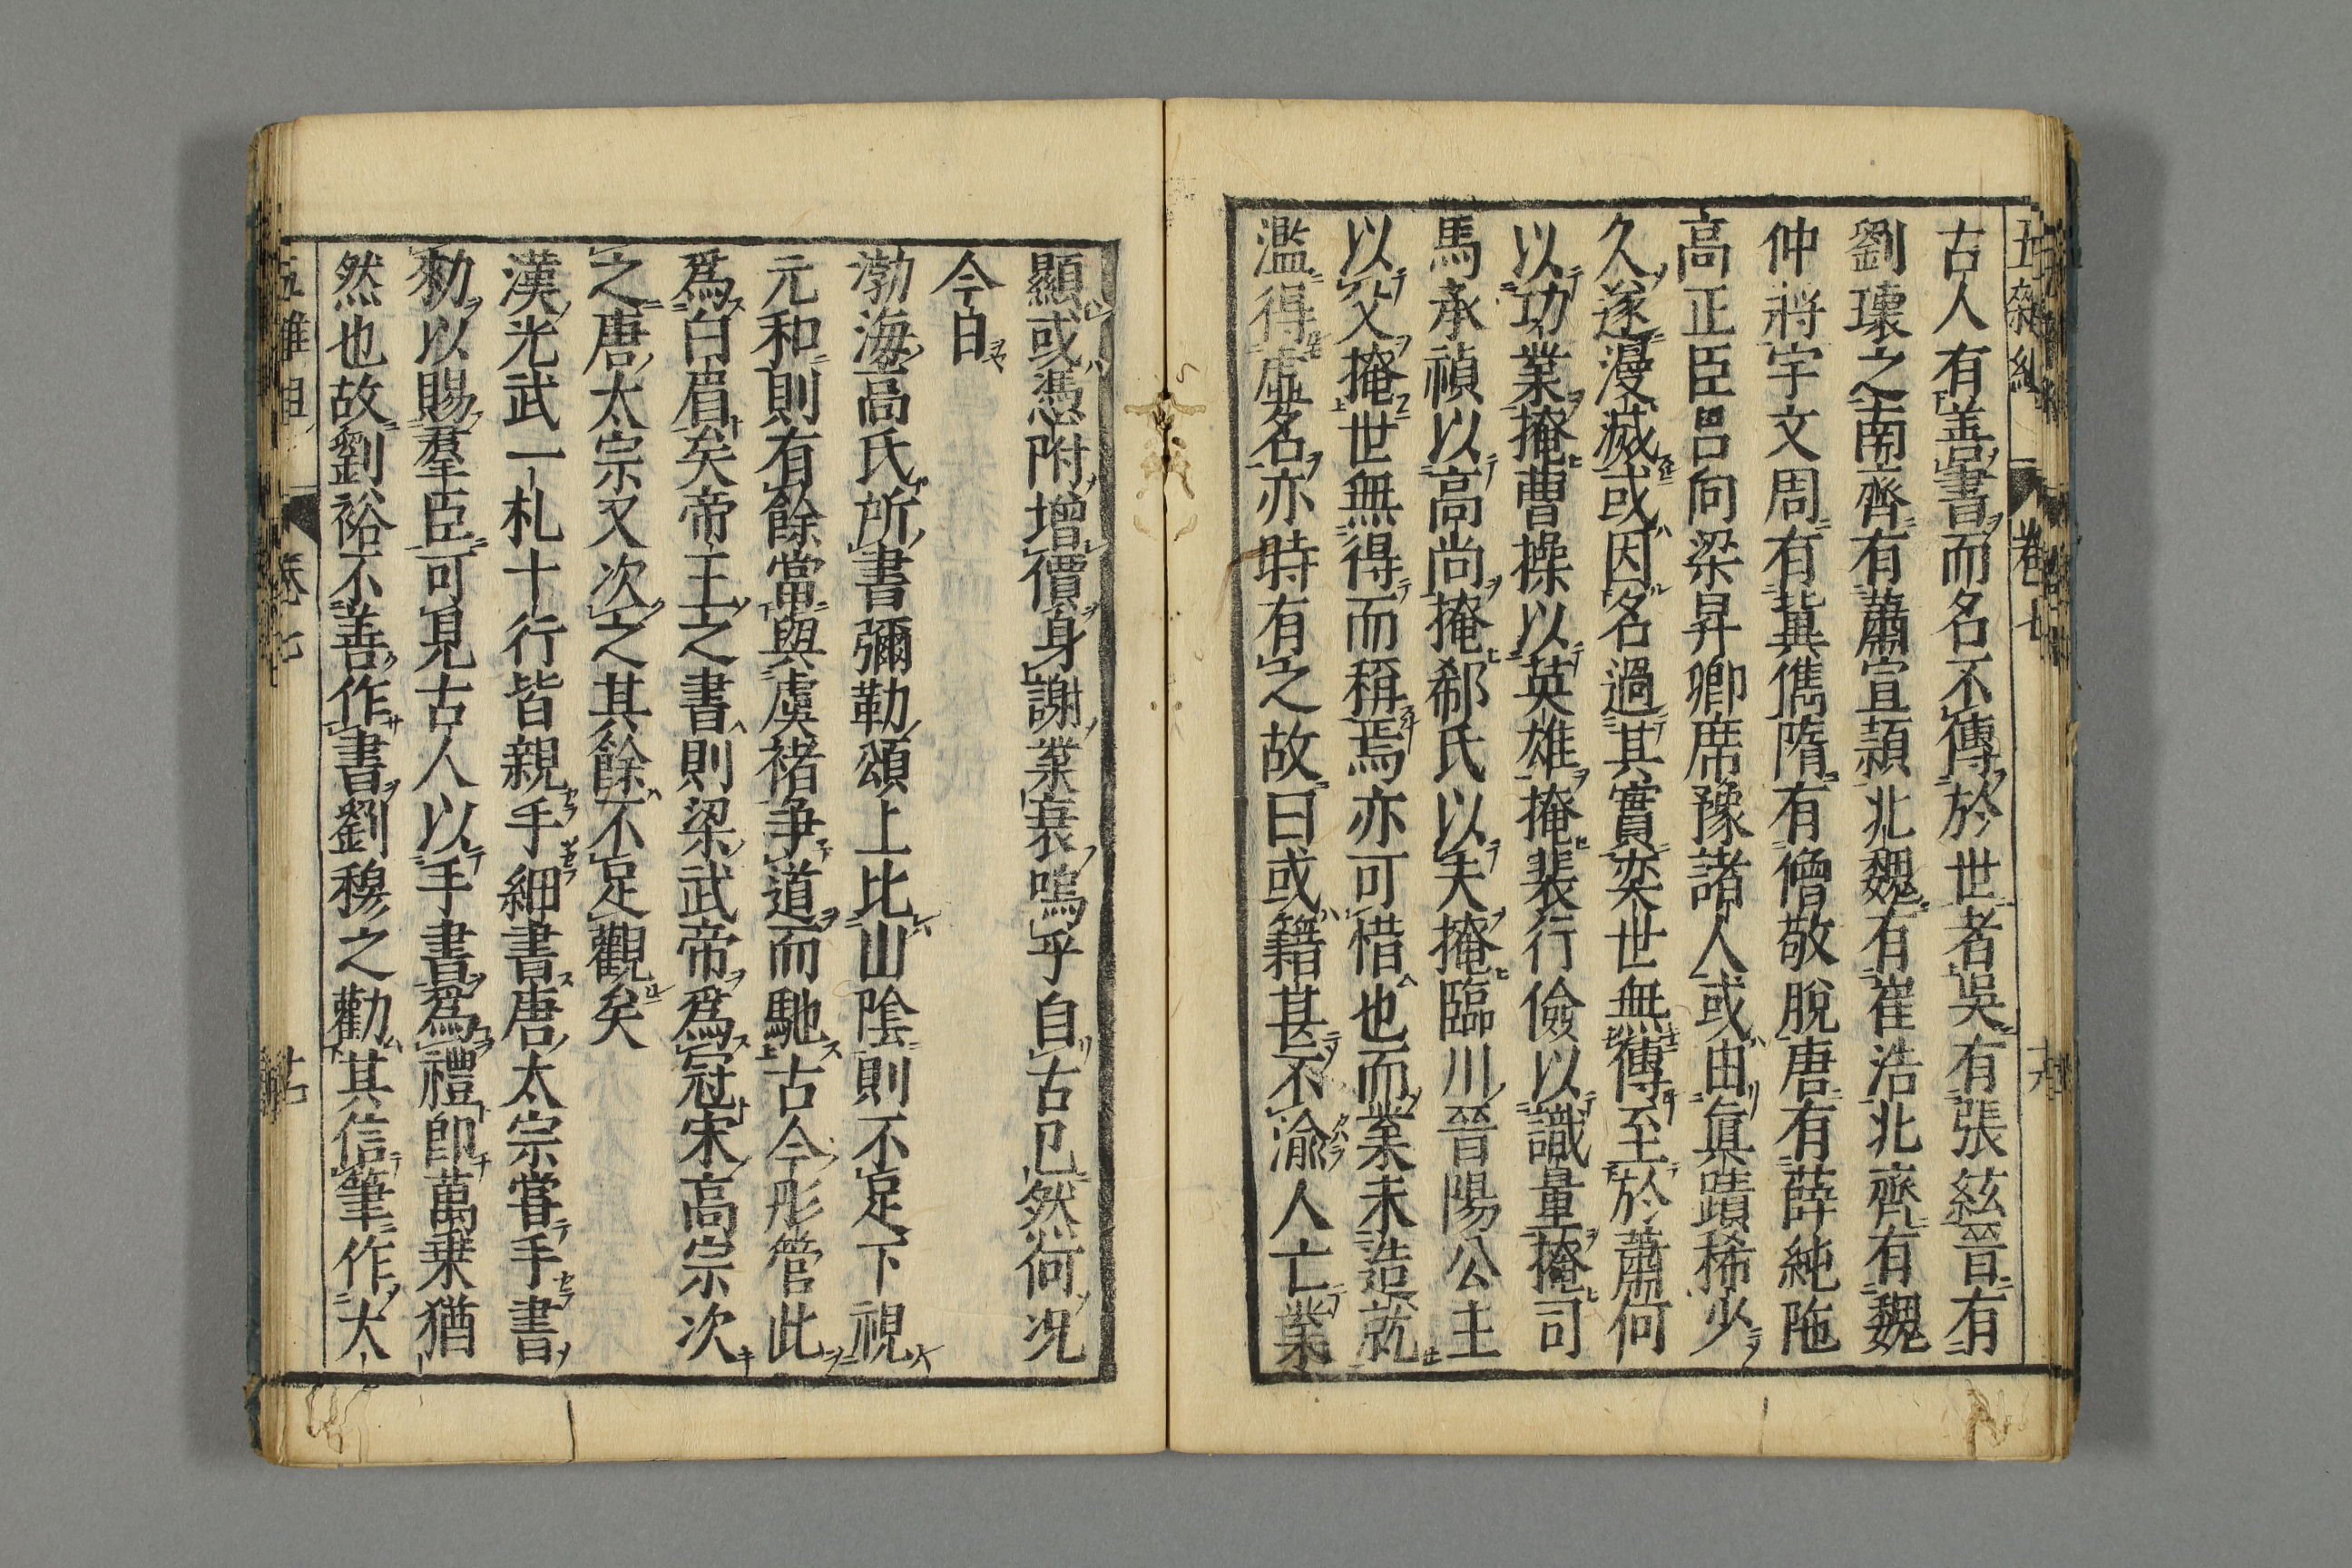 古人有善書而名不傳於世者吳有張紘晉有
劉瓌之南齊有蕭宣頴北魏有崔浩北齊有魏
仲將宇文周有冀儁隋有僧敬脫唐有薛純陁
高正臣呂向梁昇卿席豫諸人或由眞蹟稀少
久遂漫滅或因名過其實奕世無傳至於蕭何
以功業掩曹操以英雄掩裴行儉以識量掩司
馬承禎以高尚掩郗氏以夫掩臨川晉陽公主
以父掩世無得而稱焉亦可惜也而業未造就
濫得虛名亦時有之故曰或籍甚不渝人亡業
顯或憑附增價身謝業衰嗚乎自古已然何況
今日
渤海高氏所書彌勒頌上比山陰則不足下視
元和則有餘當與虞褚爭道而馳古今彤管此
爲白眉矣帝王之書則梁武帝爲冠宋高宗次
之唐太宗又次之其餘不足觀矣
漢光武一札十行皆親手細書唐太宗嘗手書
勑以賜羣臣可見古人以手書爲禮卽萬乗猶
然也故劉裕不善作書劉穆之勸其信筆作大
五雜組
卷七